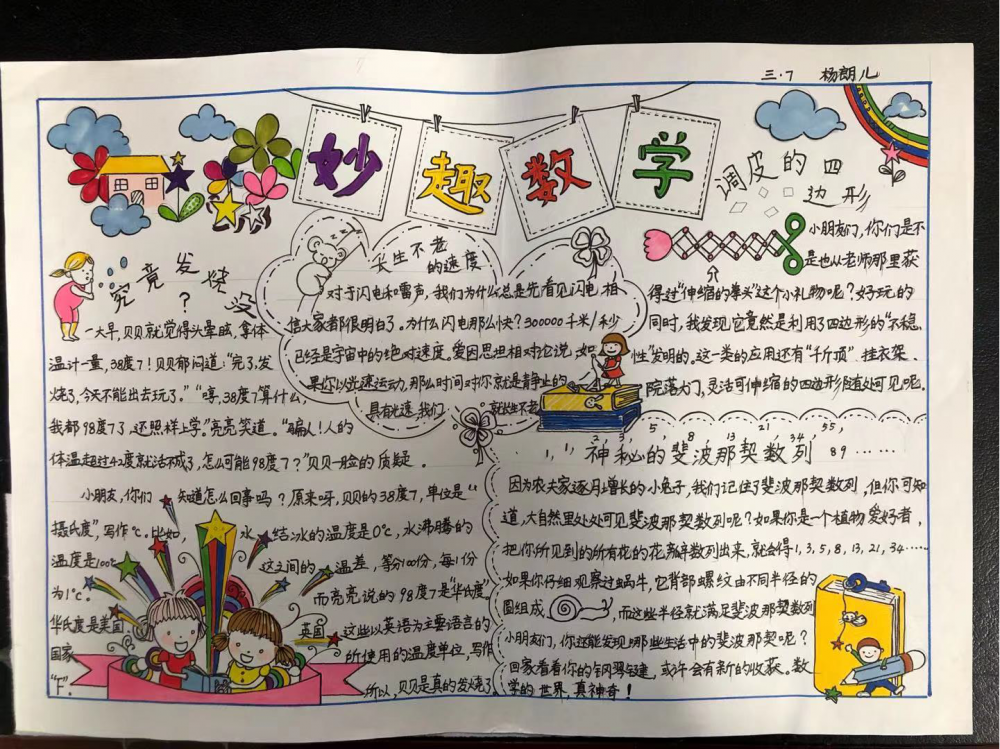 三.7 杨朗儿
妙趣数学
究竟发烧没
?
一大早,贝贝就觉得头晕眩,拿体
温计一量,38度7!贝贝郁闷道:“完了,发
烧了,今天不能出去玩了。”“嘚,38度7算什么,
我都98度7了,还照样上学。”亮亮笑道。“骗人!人的
体温超过42度就活不成了,怎么可能98度7?”贝贝一脸的质疑。
小朋友,你们知道怎么回事吗?原来呀,贝贝的38度7,单位是“
摄氏度”,写作℃。比如,水结冰的温度是0℃,水沸腾的
温度是100℃ 这之间的温差,等分100份,每1份
为1℃。 而亮亮说的98度7是“华氏度”
华氏度是美国 英国 这些以英语为主要语言的
国家 所使用的温度单位,写作
“℉”。 所以,贝贝是真的发烧了
长生不老
的速度
对于闪电和雷声,我们为什么总是先看见闪电相
信大家都很明白了。为什么闪电那么快?300000千米/秒
已经是宇宙中的绝对速度,爱因思坦相对论说,如
果你以光速运动,那么时间对你就是静止的
具有光速,我们 就长生不老
调皮的四
边形
小朋友们,你们是不
是也从老师那里获
得过“伸缩的拳头”这个小礼物呢?好玩的
同时,我发现它竟然是利用了四边形的“不稳
性”发明的。这一类的应用还有“千斤顶”挂衣架.
院落大门,灵活可伸缩的四边形随处可见呢。
1, 1, 2, 3, 5, 8, 13, 21, 34, 55,
神秘的斐波那契数列 89……
因为农夫家逐月增长的小兔子,我们记住了斐波那契数列,但你可知
道,大自然里处处可见斐波那契数列呢?如果你是一个植物爱好者,
把你所见到的所有花的花瓣数列出来,就会得1,3,5,8,13,21,34……
如果你仔细观察过蜗牛,它背部螺纹由不同半径的
圆组成,而这些半径就满足斐波那契数列
小朋友们,你还能发现哪些生活中的斐波那契呢?
回家看看你的钢琴键,或许会有新的收获。数
学的世界,真神奇!